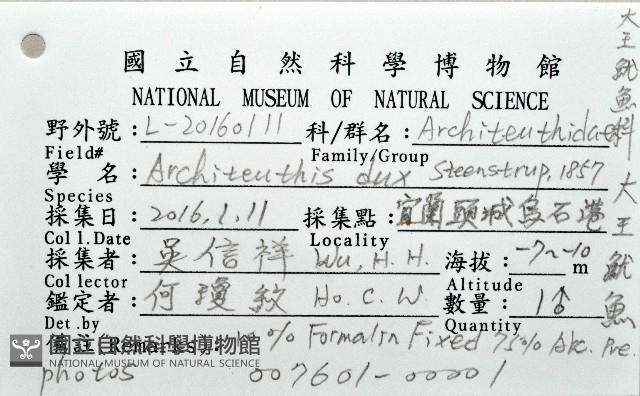 國立自然科學博物館
NATIONAL MUSEUM OF NATURAL SCIENCE
野外號：L-20160111 科/群名：Architeuthidae
Field# Family/Group
學 名：Architeuthis dux Steenstrup, 1857
Species
採集日：2016.1.11 採集點：宜蘭頭城烏石港
Coll.Date Locality
採集者：吳信祥 Wu, H. H. 海拔：-7~-10 m
Collector Altitude
鑑定者：何瓊紋 Ho. C. W. 數量：1♂
Det.by Quantity
Remarks: % Formalin Fixed 75% Alc. Pre.
photos 007601-00001
大王魷魚科大王魷魚
國立自然科學博物館
NATIONAL MUSEUM OF NATURAL SCIENCE